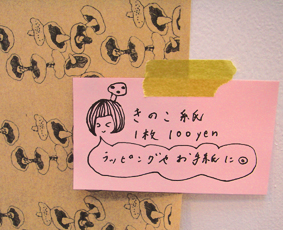 きのこ紙
1枚 100yen
ラッピングやお手紙に◎